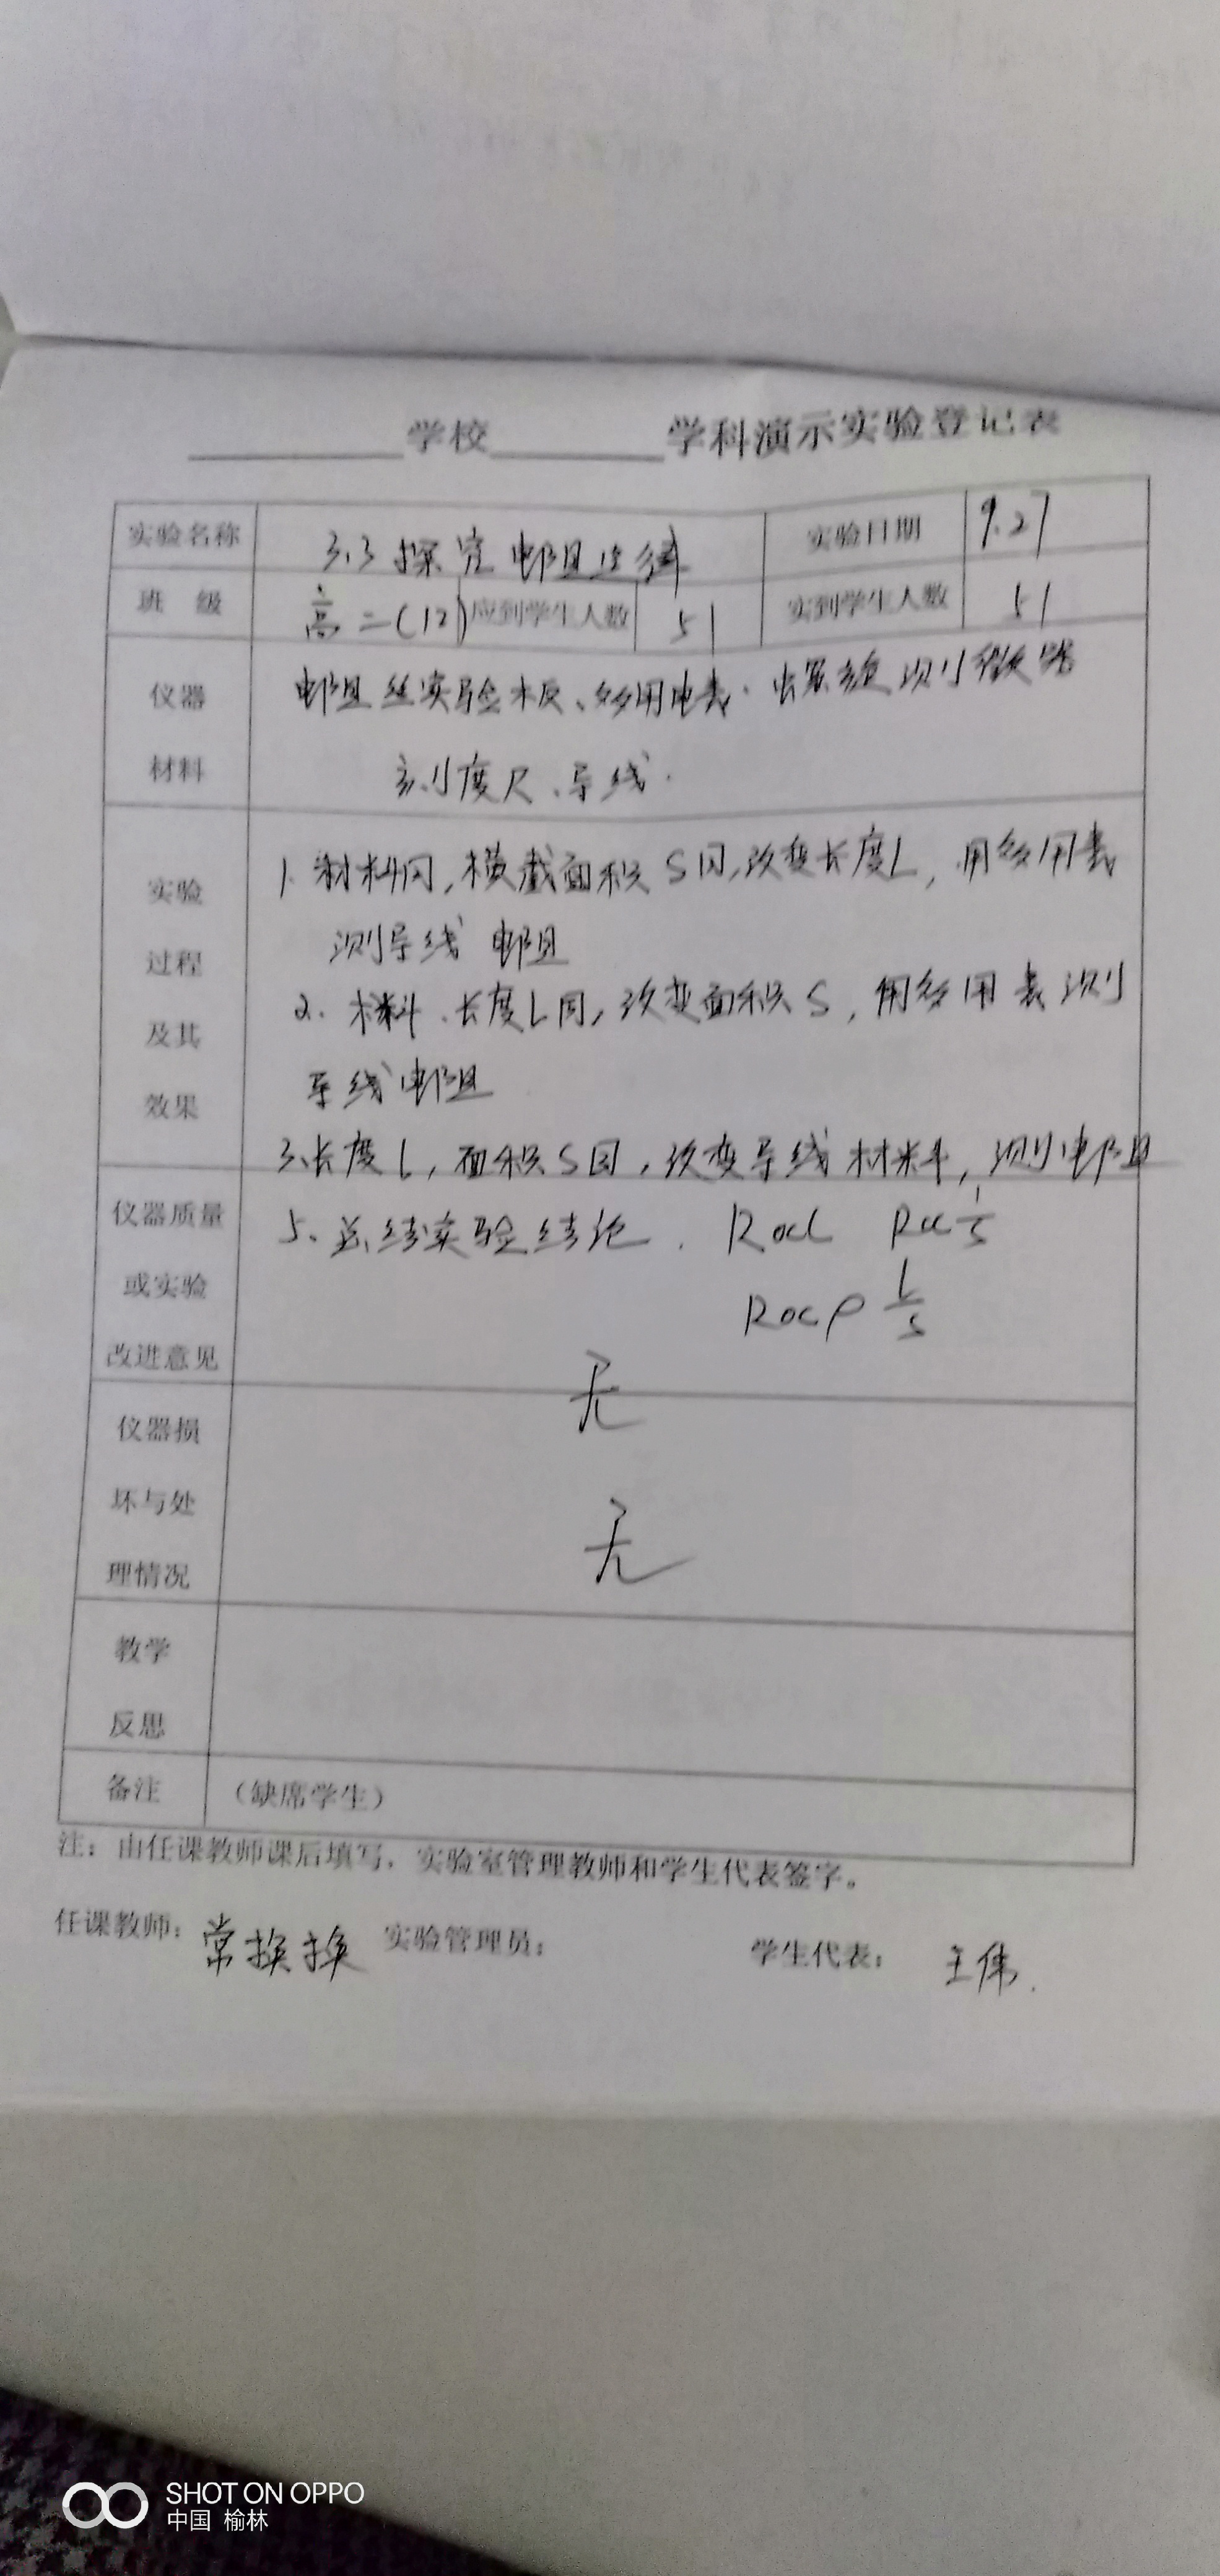 学校 学科演示实验登记表
实验名称 3.3探究电阻定律 实验日期 9.27
班 级 高二(12) 应到学生人数 51 实到学生人数 51
仪器 电阻丝实验板、多用电表、测微器
材料 刻度尺、导线.
实验 1. 材料同,横截面积S同,改变长度L,用多用表
过程 测导线电阻
及其 2. 材料、长度L同,改变面积S,用多用表测
效果 导线电阻
3.长度L,面积S同,改变导线材料,测电阻
仪器质量 5.总结实验结论. R∝L R∝1/S
或实验 R∝ρ L/S
改进意见 无
仪器损
坏与处 无
理情况
教学
反思
备注 (缺席学生)
注:由任课教师课后填写,实验室管理教师和学生代表签字。
任课教师: 常换换 实验管理员: 学生代表: 王伟.
SHOT ON OPPO
中国 榆林